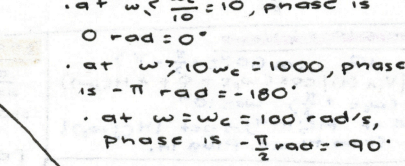 · at ω < ωc/10 = 10, phase is
0 rad = 0°
· at ω > 10ωc = 1000, phase
is -π rad = -180°
· at ω = ωc = 100 rad/s,
phase is -π/2 rad = -90°